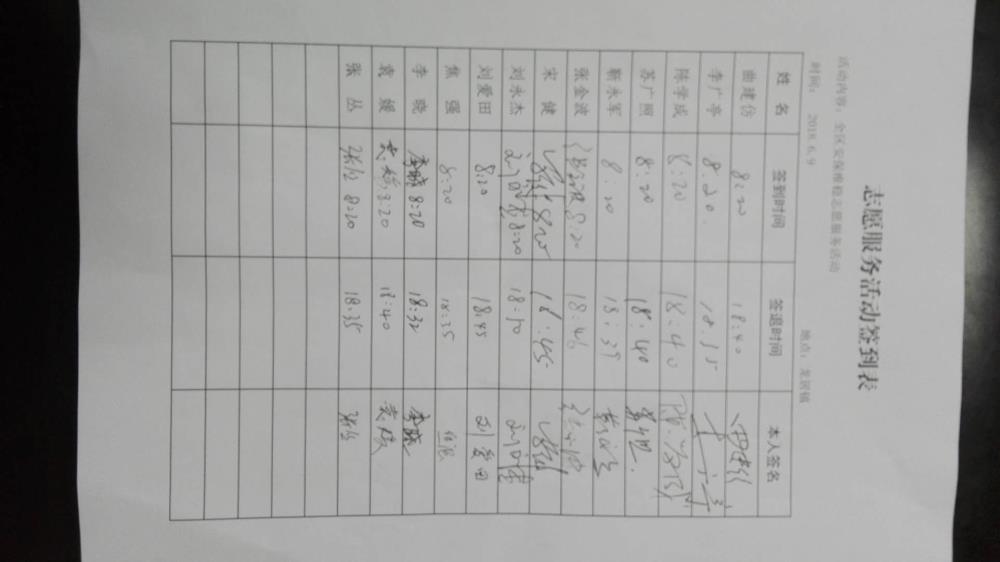 志愿服务活动签到表
活动内容：全区安保维稳志愿服务活动
时间：2018.6.9 地点：龙居镇
姓 名 签到时间 签退时间 本人签名
曲建仿 8:20 18:40
李广亭 8:20 18:35
陈学成 8:20 18:40
苏广照 8:20 18:40
靳永军 8:20 18:39
张金波 8:20 18:46
宋 健 8:20 18:45
刘永杰 8:20 18:50
刘爱田 8:20 18:45 刘爱田
焦 强 8:20 18:35
李 晓 李晓 8:20 18:32 李晓
袁 媛 袁媛 8:20 18:40 袁媛
张 丛 张丛 8:20 18:35 张丛